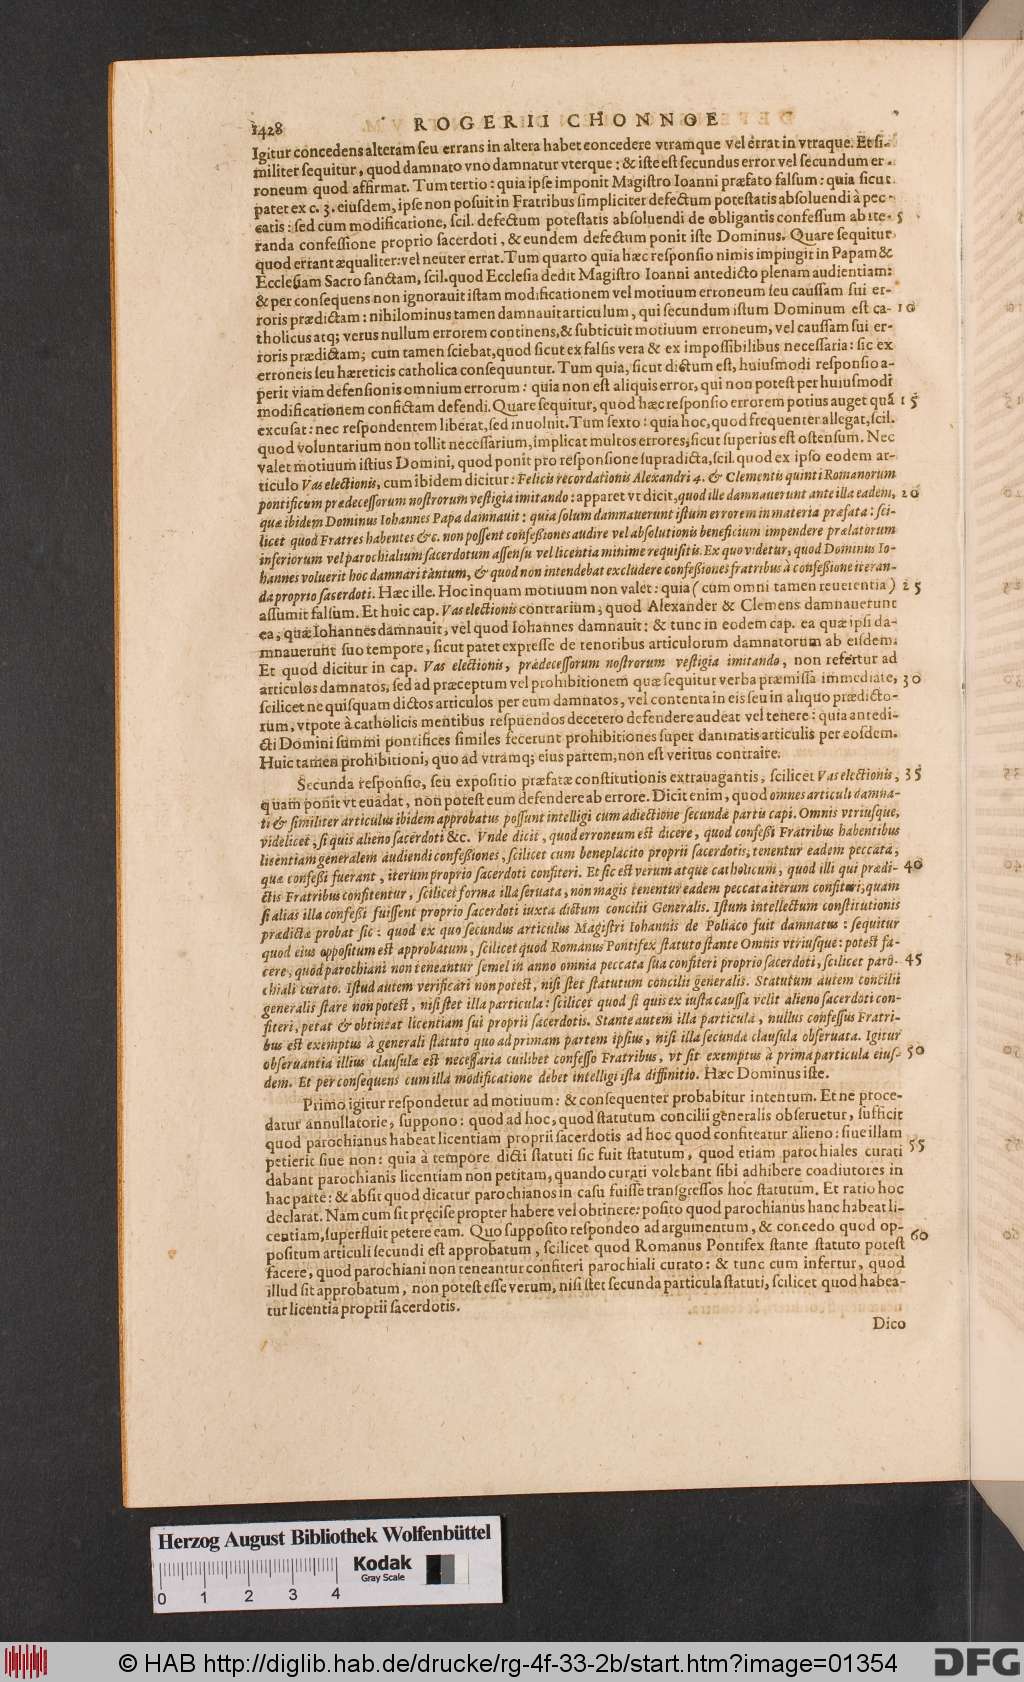 1428 ROGERII CHONNOE
Igitur concedens alteram seu errans in altera habet concedere vtramque vel errat in vtraque. Et si-
militer sequitur, quod damnato vno damnatur vterque: & iste est secundus error vel secundum er-
roneum quod affirmat. Tum tertio: quia ipse imponit Magistro Ioanni præfato falsum: quia sicut
patet ex c. 3. eiusdem, ipse non posuit in Fratribus simpliciter defectum potestatis absoluendi à pec-
catis: sed cum modificatione, scil. defectum potestatis absoluendi de obligantis confessum ab ite- 5
randa confessione proprio sacerdoti, & eundem defectum ponit iste Dominus. Quare sequitur
quod errant æqualiter: vel neuter errat. Tum quarto quia hæc responsio nimis impingit in Papam &
Ecclesiam Sacro sanctam, scil. quod Ecclesia dedit Magistro Ioanni antedicto plenam audientiam:
& per consequens non ignorauit istam modificationem vel motiuum erroneum seu caussam sui er-
roris prædictam: nihilominus tamen damnauit articulum, qui secundum istum Dominum est ca- 10
tholicus atq; verus nullum errorem continens, & subticuit motiuum erroneum, vel caussam sui er-
roris prædictam; cum tamen sciebat, quod sicut ex falsis vera & ex impossibilibus necessaria: sic ex
erroneis seu hæreticis catholica consequuntur. Tum quia, sicut dictum est, huiusmodi responsio a-
perit viam defensionis omnium errorum: quia non est aliquis error, qui non potest per huiusmodi
modificationem confictam defendi. Quare sequitur, quod hæc responsio errorem potius auget quā 15
excusat: nec respondentem liberat, sed inuoluit. Tum sexto: quia hoc, quod frequenter allegat, scil.
quod voluntarium non tollit necessarium, implicat multos errores, sicut superius est ostensum. Nec
valet motiuum istius Domini, quod ponit pro responsione supradicta, scil. quod ex ipso eodem ar-
ticulo Vas electionis, cum ibidem dicitur: Felicis recordationis Alexandri 4. & Clementis quinti Romanorum
pontificum prædecessorum nostrorum vestigia imitando: apparet vt dicit, quod ille damnauerunt ante illa eadem, 20
quæ ibidem Dominus Iohannes Papa damnauit: quia solum damnauerunt istum errorem in materia præfata: sci-
licet quod Fratres habentes &c. non possent confessiones audire vel absolutionis beneficium impendere prælatorum
inferiorum vel parochialium sacerdotum assensu vel licentia minime requisitis. Ex quo videtur, quod Dominus Io-
hannes voluerit hoc damnari tantum, & quod non intendebat excludere confessiones fratribus à confessione iteran-
da proprio sacerdoti. Hæc ille. Hoc inquam motiuum non valet: quia (cum omni tamen reuerentia) 25
assumit falsum. Et huic cap. Vas electionis contrarium, quod Alexander & Clemens damnauerunt
ea, quæ Iohannes damnauit, vel quod Iohannes damnauit: & tunc in eodem cap. ea quæ ipsi da-
mnauerunt suo tempore, sicut patet expresse de tenoribus articulorum damnatorum ab eisdem.
Et quod dicitur in cap. Vas electionis, prædecessorum nostrorum vestigia imitando, non refertur ad
articulos damnatos, sed ad præceptum vel prohibitionem quæ sequitur verba præmissa immediate, 30
scilicet ne quisquam dictos articulos per eum damnatos, vel contenta in eis seu in aliquo prædicto-
rum, vtpote à catholicis mentibus respuendos decetero defendere audeat vel tenere: quia antedi-
cti Domini summi pontifices similes fecerunt prohibitiones super damnatis articulis per eosdem.
Huic tamen prohibitioni, quo ad vtramq; eius partem, non est veritus contraire.
Secunda responsio, seu expositio præfatæ constitutionis extrauagantis, scilicet Vas electionis, 35
quam ponit vt euadat, non potest eum defendere ab errore. Dicit enim, quod omnes articuli damna-
ti & similiter articulus ibidem approbatus possunt intelligi cum adiectione secundæ partis capi. Omnis vtriusque,
videlicet, si quis alieno sacerdoti &c. Vnde dicit, quod erroneum est dicere, quod confessi Fratribus habentibus
licentiam generalem audiendi confessiones, scilicet cum beneplacito proprii sacerdotis, tenentur eadem peccata,
quæ confessi fuerant, iterum proprio sacerdoti confiteri. Et sic est verum atque catholicum, quod illi qui prædi- 40
ctis Fratribus confitentur, scilicet forma illa seruata, non magis tenentur eadem peccata iterum confiteri, quam
si alias illa confessi fuissent proprio sacerdoti iuxta dictum concilii Generalis. Istum intellectum constitutionis
prædictæ probat sic: quod ex quo secundus articulus Magistri Iohannis de Poliaco fuit damnatus: sequitur
quod eius oppositum est approbatum, scilicet quod Romanus Pontifex statuto stante Omnis vtriusque: potest fa-
cere, quod parochiani non teneantur semel in anno omnia peccata sua confiteri proprio sacerdoti, scilicet paro- 45
chiali curato. Istud autem verificari non potest, nisi stet statutum concilii generalis. Statutum autem concilii
generalis stare non potest, nisi stet illa particula: scilicet quod si quis ex iusta caussa velit alieno sacerdoti con-
fiteri, petat & obtineat licentiam sui proprii sacerdotis. Stante autem illa particula, nullus confessus Fratri-
bus est exemptus à generali statuto quo ad primam partem ipsius, nisi illa secunda clausula obseruata. Igitur
obseruantia illius clausulæ est necessaria cuilibet confesso Fratribus, vt sit exemptus à prima particula eius- 50
dem. Et per consequens cum illa modificatione debet intelligi ista diffinitio. Hæc Dominus iste.
Primo igitur respondetur ad motiuum: & consequenter probabitur intentum. Et ne proce-
datur annullatorie, suppono: quod ad hoc, quod statutum concilii generalis obseruetur, sufficit
quod parochianus habeat licentiam proprii sacerdotis ad hoc quod confiteatur alieno: siue illam
petierit siue non: quia à tempore dicti statuti sic fuit statutum, quod etiam parochiales curati 55
dabant parochianis licentiam non petitam, quando curati volebant sibi adhibere coadiutores in
hac parte: & absit quod dicatur parochianos in casu fuisse transgressos hoc statutum. Et ratio hoc
declarat. Nam cum sit pręcise propter habere vel obtinere: posito quod parochianus hanc habeat li-
centiam, superfluit petere eam. Quo supposito respondeo ad argumentum, & concedo quod op- 60
positum articuli secundi est approbatum, scilicet quod Romanus Pontifex stante statuto potest
facere, quod parochiani non teneantur confiteri parochiali curato: & tunc cum infertur, quod
illud sit approbatum, non potest esse verum, nisi stet secunda particula statuti, scilicet quod habea-
tur licentia proprii sacerdotis.
Dico
Herzog August Bibliothek Wolfenbüttel
Kodak
Gray Scale
0 1 2 3 4
© HAB http://diglib.hab.de/drucke/rg-4f-33-2b/start.htm?image=01354
DFG